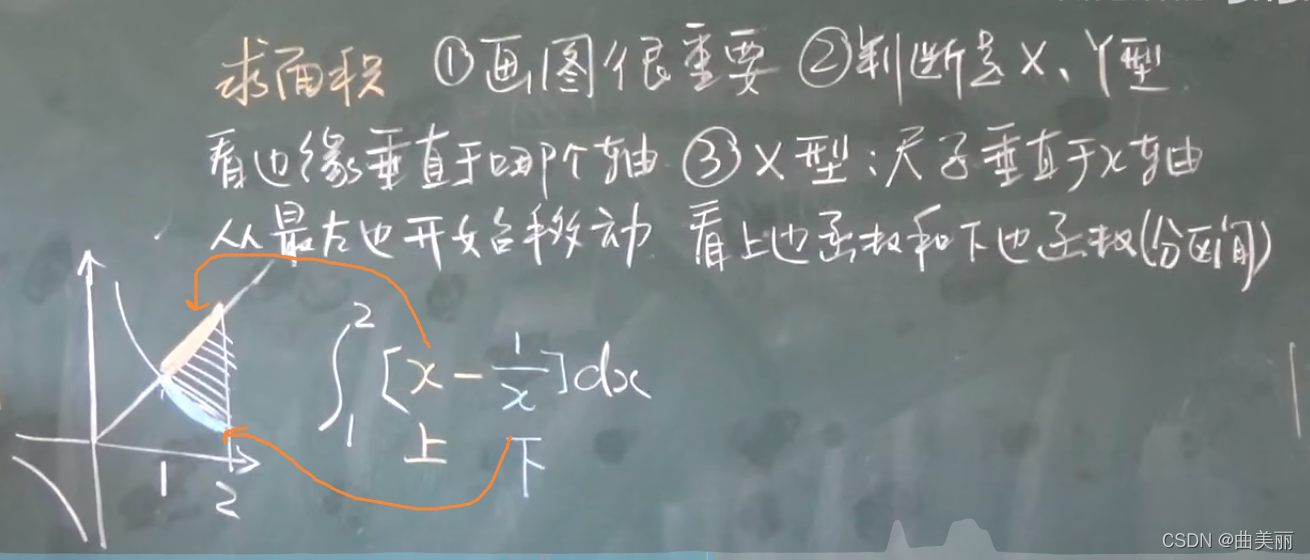 求面积 ①画图很重要 ②判断是X、Y型
看边缘垂直于哪个轴 ③X型:尺子垂直于x轴
从最左边开始移动 看上边函数和下边函数(分区间)
∫₁² [x - 1/x]dx
上 下
1 2
CSDN @曲美丽